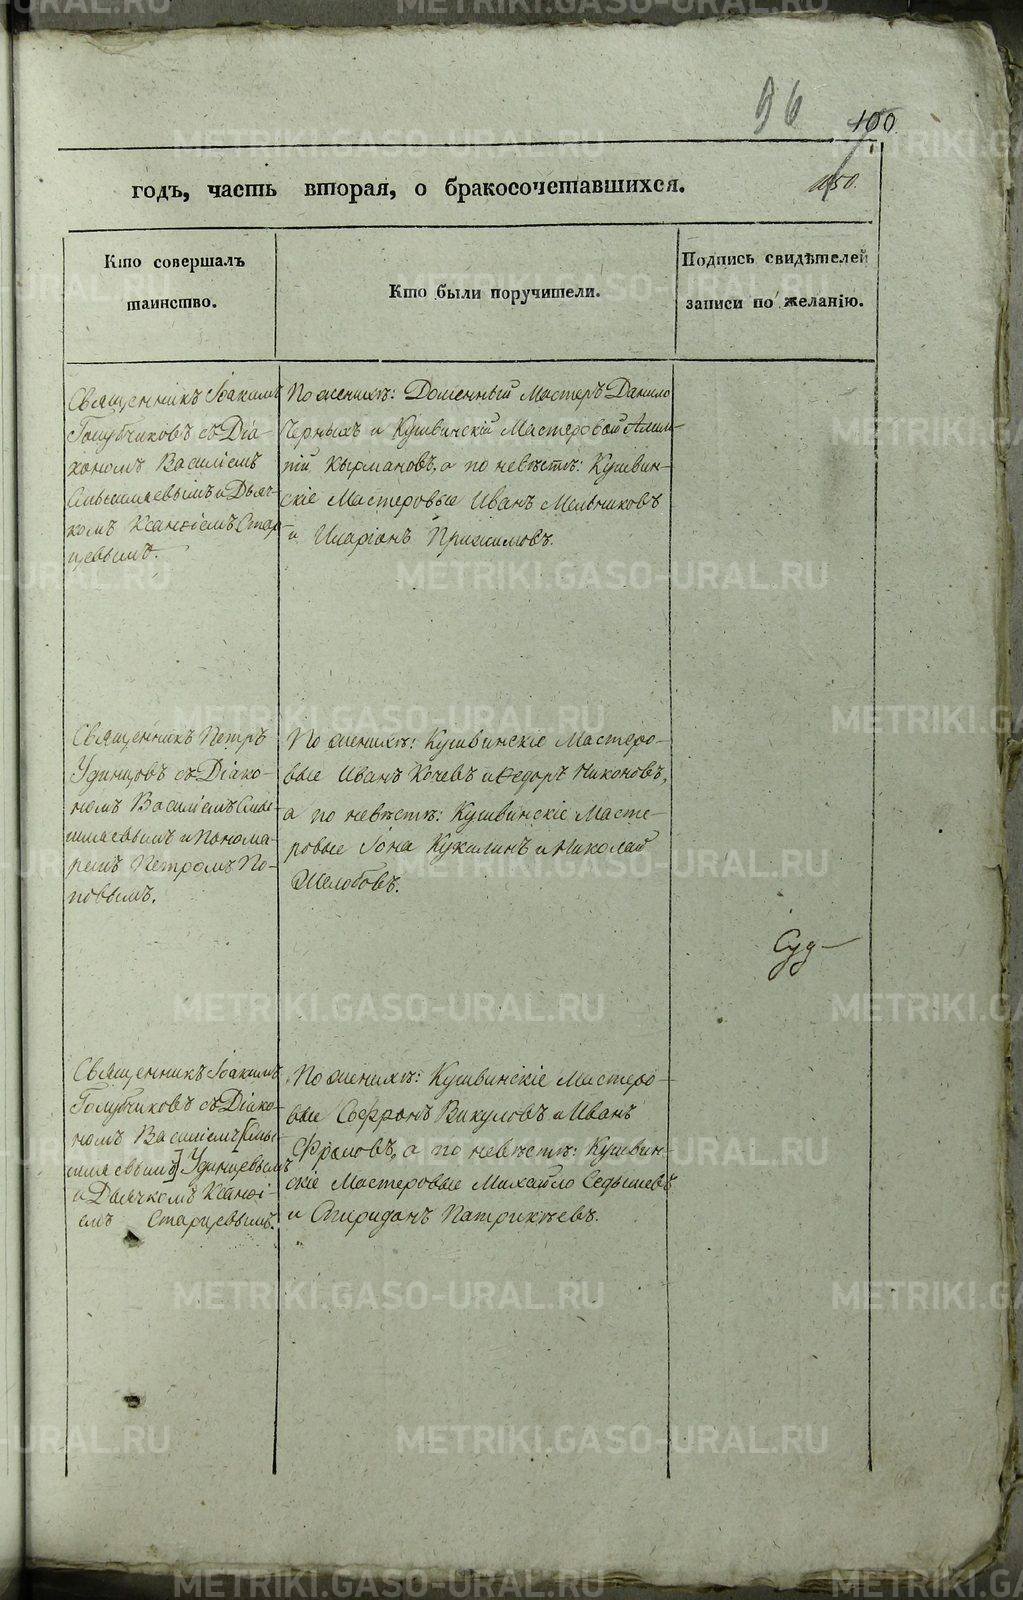 96
100
годъ, часть вторая, о бракосочетавшихся.
Кто совершалъ
таинство.
Кто были поручители.
Подпись свидѣтелей
записи по желанію.
Священникъ Іоакимъ
Голубчиковъ съ Діа-
кономъ Василіемъ
Смышляевымъ и Дьяч-
комъ Ксанѳіемъ Стар-
цевымъ.
По женихѣ: Доменный Мастеръ Данило
Черныхъ и Кушвинскій Мастеровой Алим-
пій Кырмановъ, а по невѣстѣ: Кушвин-
скіе Мастеровые Иванъ Мельниковъ
и Иларіонъ Прижимовъ.
Священникъ Петръ
Удинцовъ съ Діако-
номъ Василіемъ Смы-
шляевымъ и Понома-
ремъ Петромъ По-
повымъ.
По женихѣ: Кушвинскіе Мастеро-
вые Иванъ Кочевъ и Ѳедоръ Никоновъ,
а по невѣстѣ: Кушвинскіе Масте-
ровые Іона Кукилинъ и Николай
Желобовъ.
Священникъ Іоакимъ
Голубчиковъ съ Діако-
номъ Василіемъ [Смы-
шляевымъ] Удинцевымъ
и Дьячкомъ Ксанѳі-
емъ Старцевымъ.
По женихѣ: Кушвинскіе Мастеро-
вые Софронъ Викуловъ и Иванъ
Фроловъ, а по невѣстѣ: Кушвин-
скіе Мастеровые Михайло Седышевъ
и Спиридонъ Патрикѣевъ.
Суд
METRIKI.GASO-URAL.RU